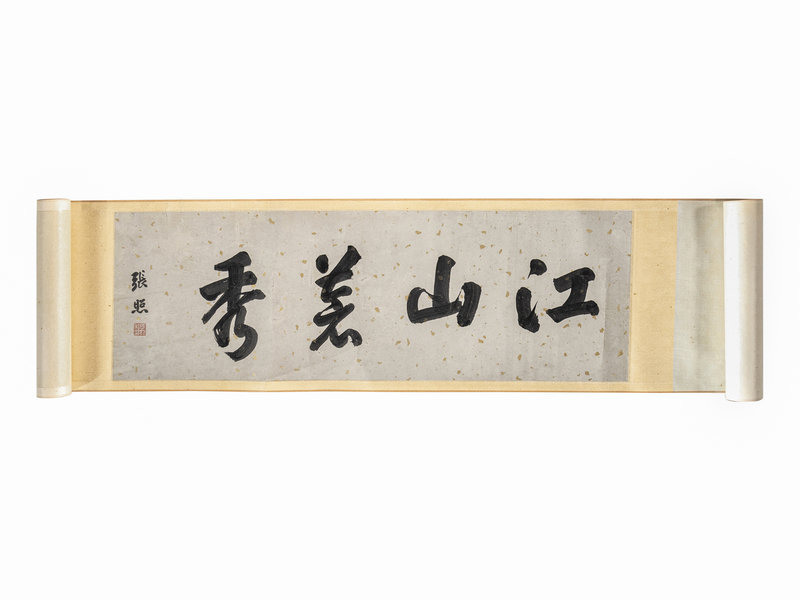 江山蒼秀
張照